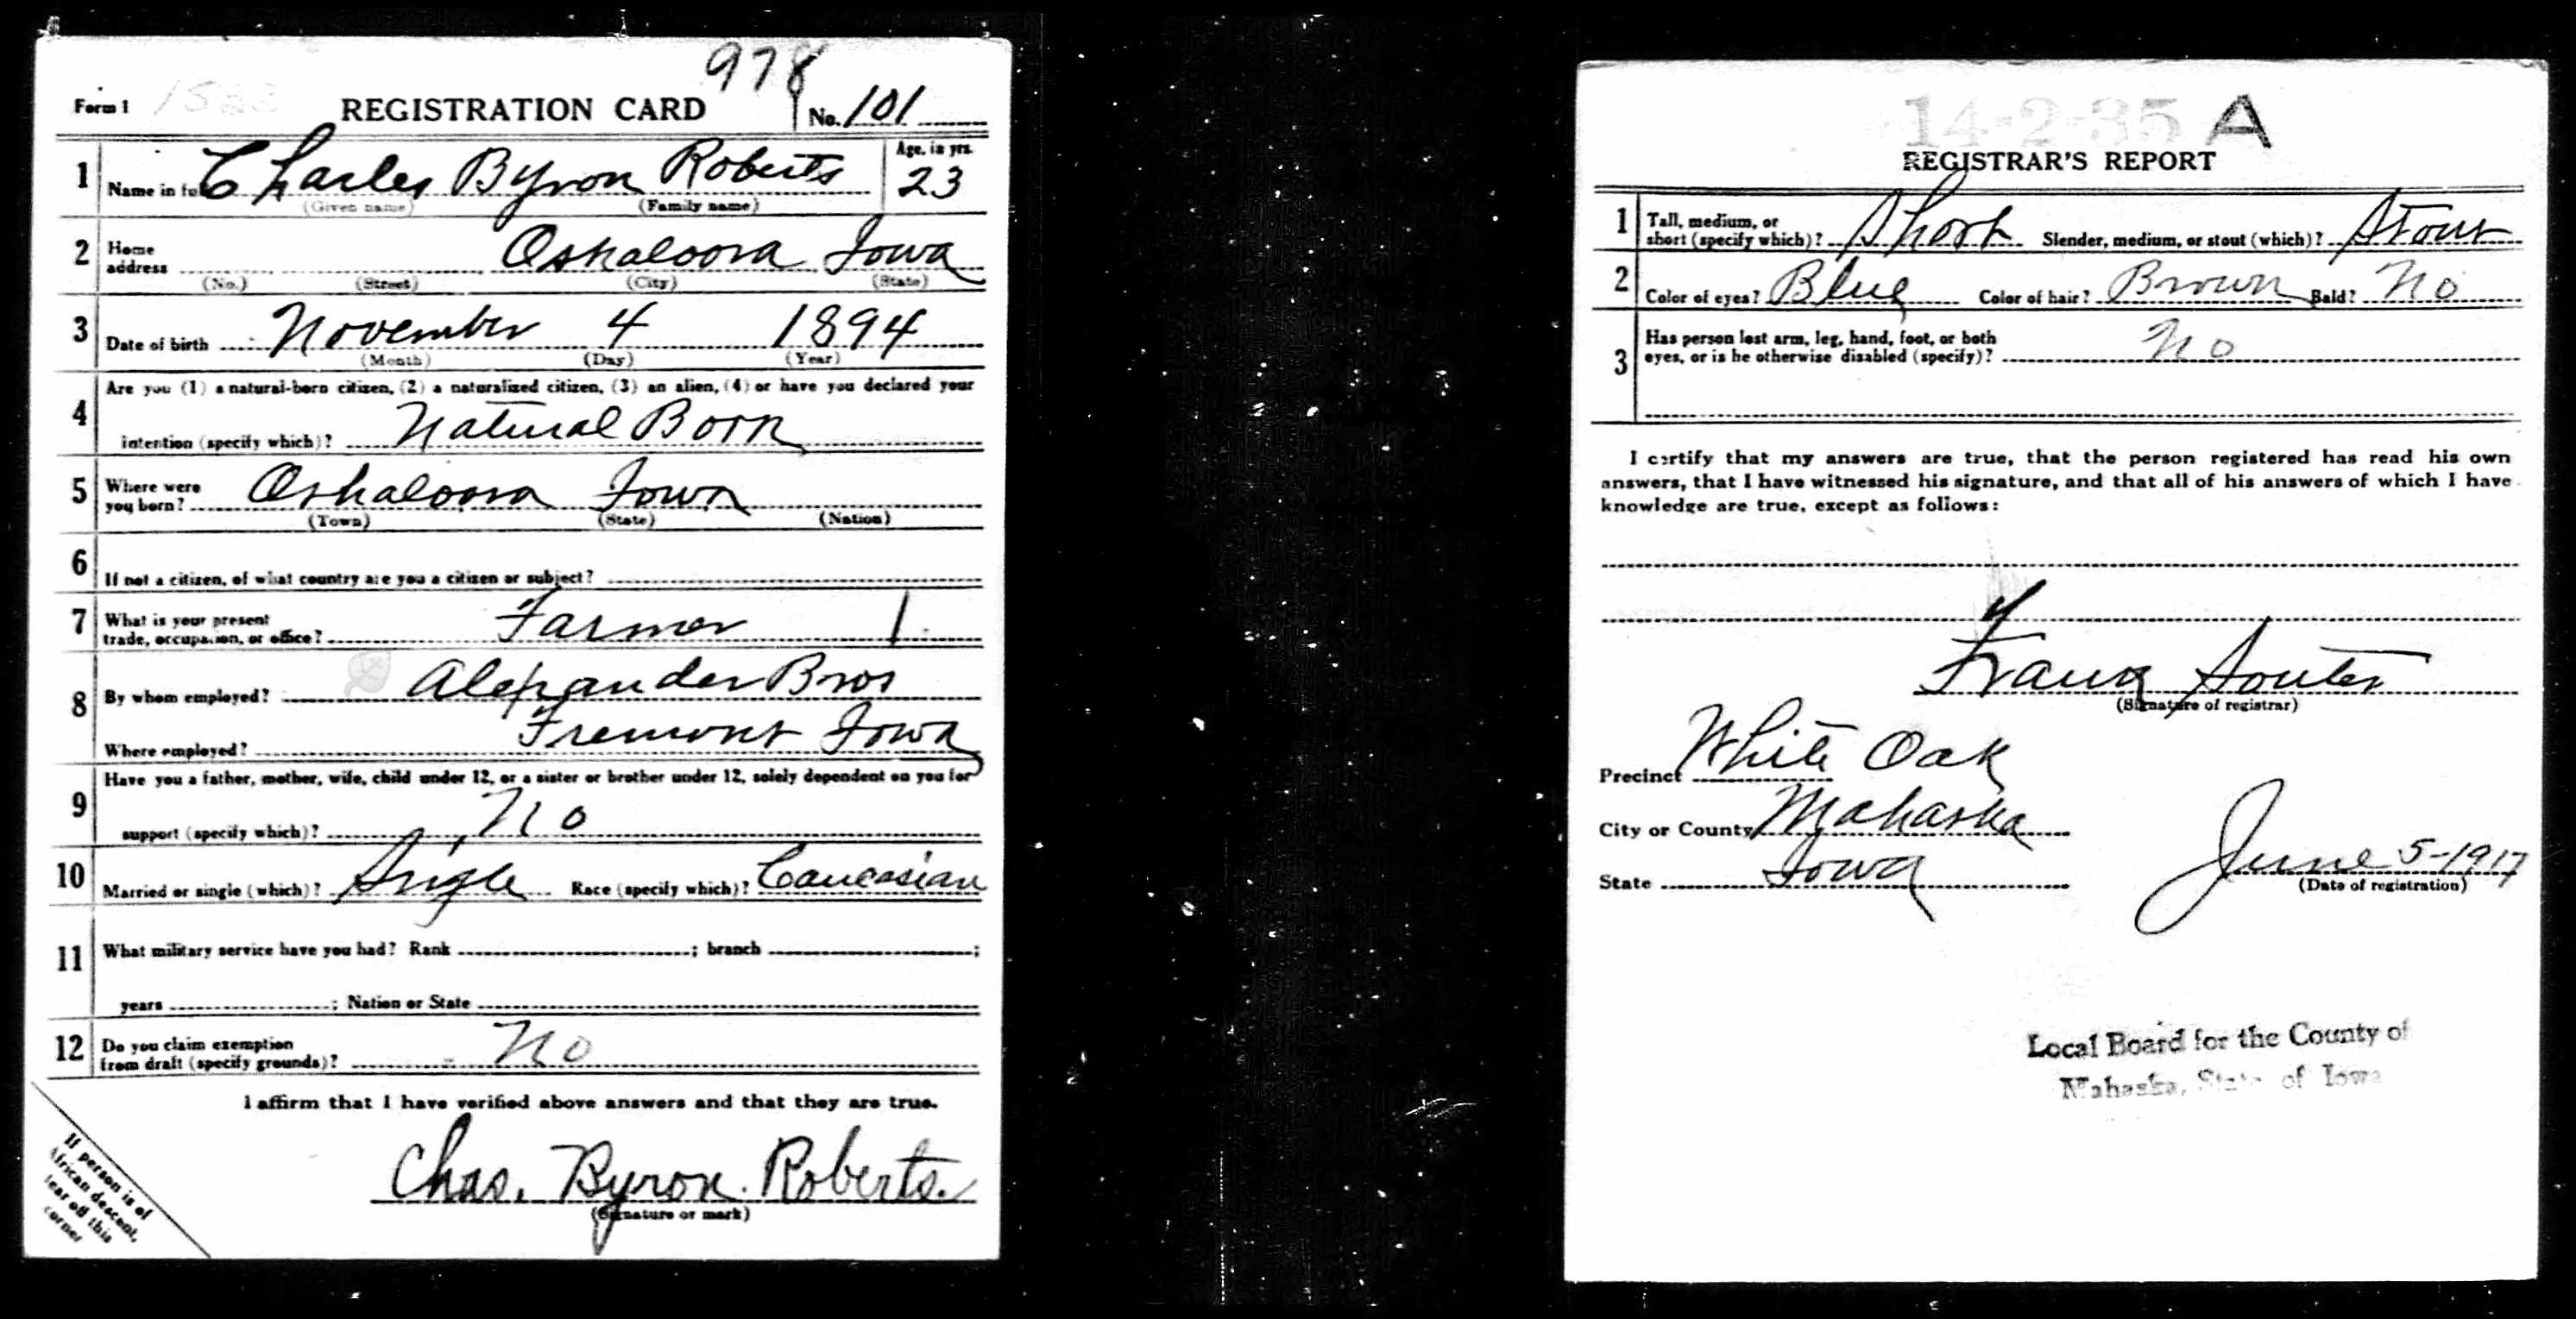 978
Form 1 REGISTRATION CARD No. 101
1 Name in full Charles Byron Roberts Age, in yrs. 23
(Given name) (Family name)
2 Home address Oskaloosa Iowa
(No.) (Street) (City) (State)
3 Date of birth November 4 1894
(Month) (Day) (Year)
4 Are you (1) a natural-born citizen, (2) a naturalized citizen, (3) an alien, (4) or have you declared your
intention (specify which)? Natural Born
5 Where were you born? Oskaloosa Iowa
(Town) (State) (Nation)
6 If not a citizen, of what country are you a citizen or subject?
7 What is your present trade, occupation, or office? Farmer 1
8 By whom employed? Alexander Bros
Where employed? Fremont Iowa
9 Have you a father, mother, wife, child under 12, or a sister or brother under 12, solely dependent on you for
support (specify which)? No
10 Married or single (which)? Single Race (specify which)? Caucasian
11 What military service have you had? Rank ; branch ;
years ; Nation or State
12 Do you claim exemption from draft (specify grounds)? No
I affirm that I have verified above answers and that they are true.
Chas. Byron. Roberts.
(Signature or mark)
If person is of
African descent,
tear off this
corner
14-2-35 A
REGISTRAR'S REPORT
1 Tall, medium, or short (specify which)? Short Slender, medium, or stout (which)? Stout
2 Color of eyes? Blue Color of hair? Brown Bald? No
3 Has person lost arm, leg, hand, foot, or both
eyes, or is he otherwise disabled (specify)? No
I certify that my answers are true, that the person registered has read his own
answers, that I have witnessed his signature, and that all of his answers of which I have
knowledge are true, except as follows:
Frank Souter
(Signature of registrar)
Precinct White Oak
City or County Mahaska
State Iowa June 5-1917
(Date of registration)
Local Board for the County of
Mahaska, State of Iowa